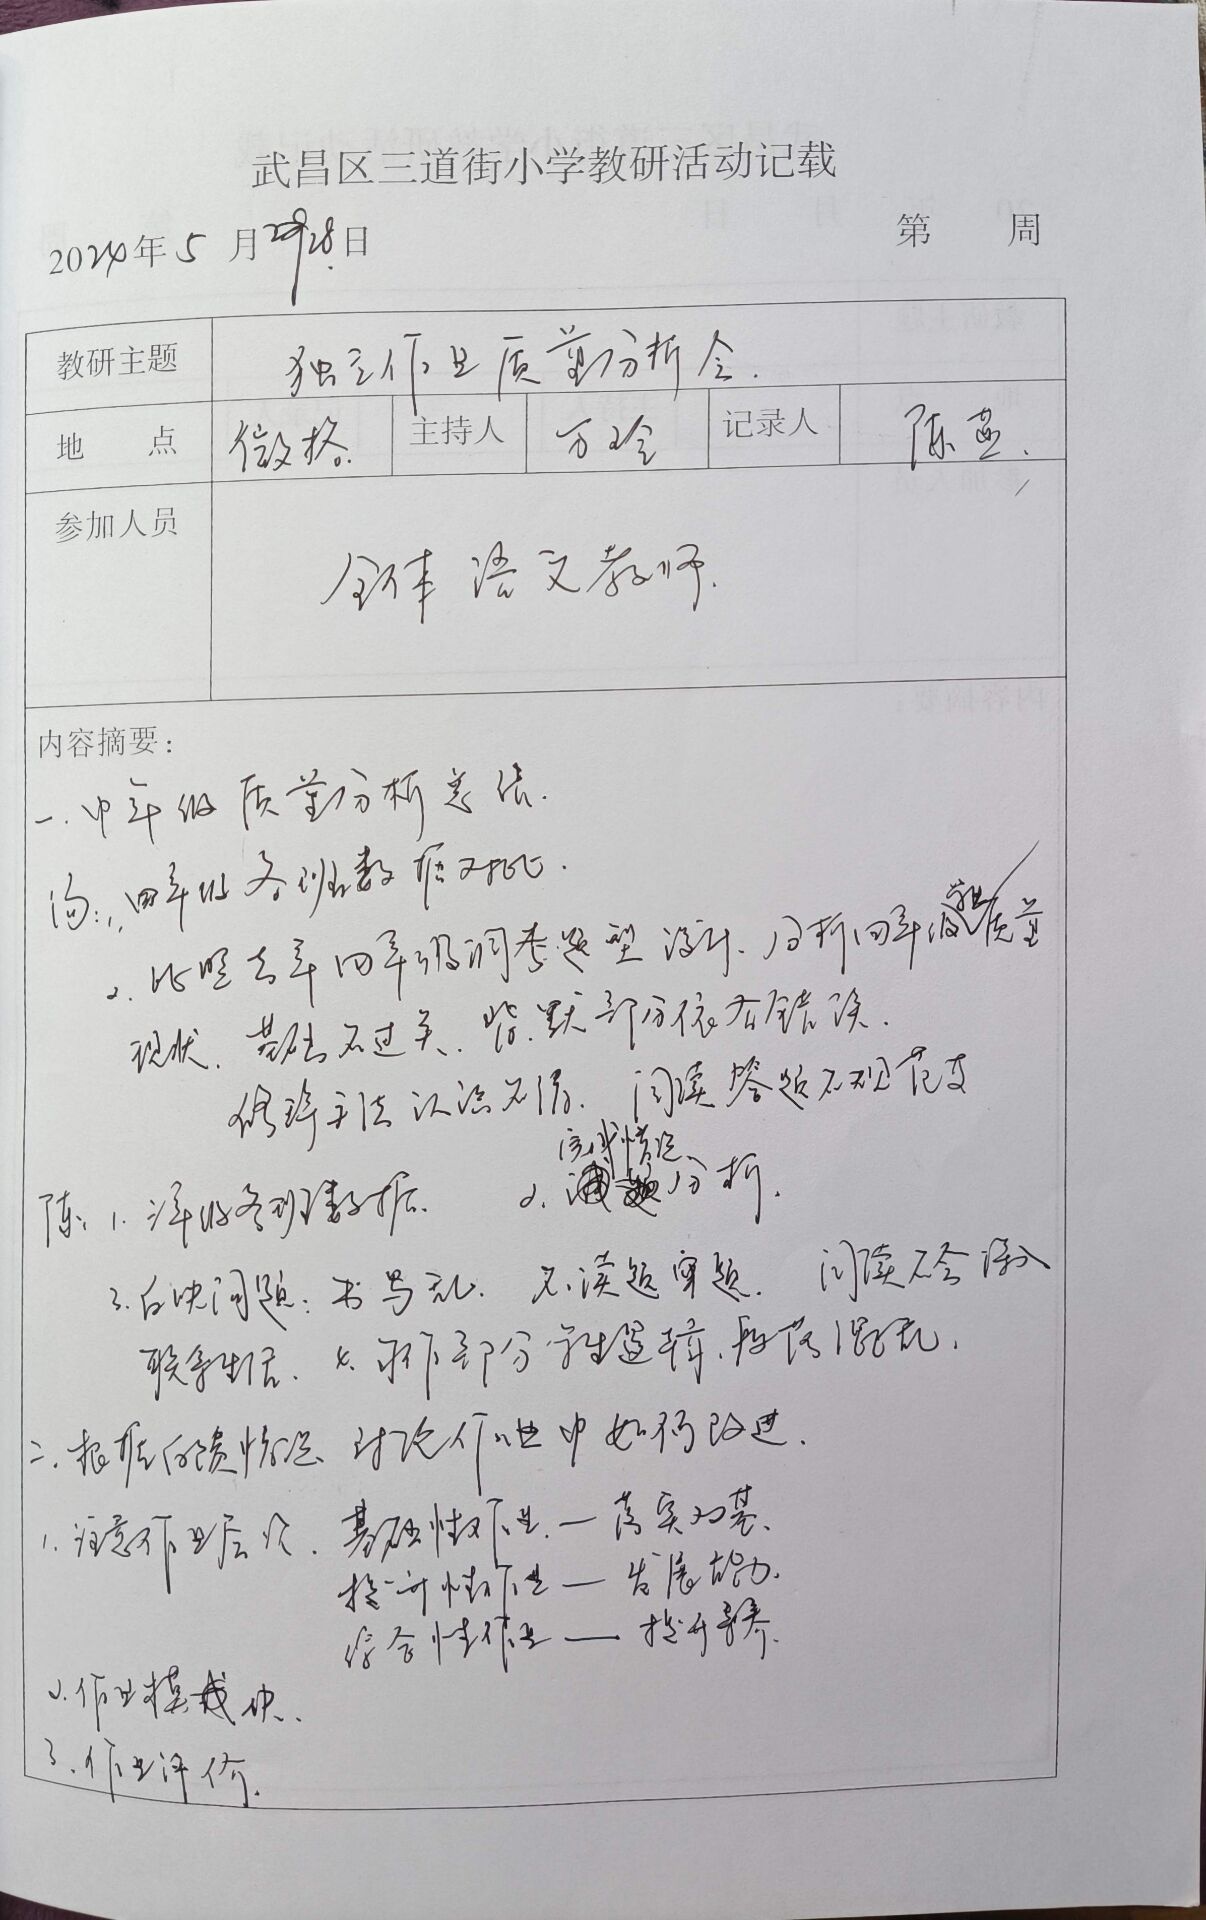 武昌区三道街小学教研活动记载
2024年5月28日 第 周
教研主题 独立作业质量分析会.
地 点 微格. 主持人 万玲 记录人 陈燕.
参加人员 全体语文教师.
内容摘要：
一.中年级质量分析总结.
汤:1.四年级各班数据对比.
2.比照去年四年级调考题型设计.分析四年级质量
现状.基础不过关.背.默部分依旧错误.
修辞手法认识不清.阅读答题不规范
陈:1.三年级各班数据. 2.完成情况分析.
3.反映问题:书写乱.不读题审题.阅读不会深入
联系生活.4.习作部分学生逻辑.段落混乱.
二.根据反馈情况.讨论作业中如何改进.
1.注意作业层次.基础性作业.—落实双基.
提升性作业—发展能力.
综合性作业—提升素养.
2.作业模块.
3.作业评价.